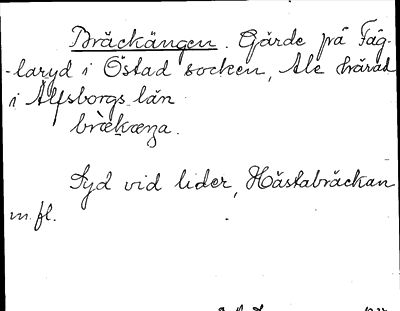 Bräckängen. Gärde på Fäg-
-laryd i Östad socken, Ale härad
i Älfsborgs län
bræ̀kæŋa.
Syd vid lider, Hästabräckan
m. fl.